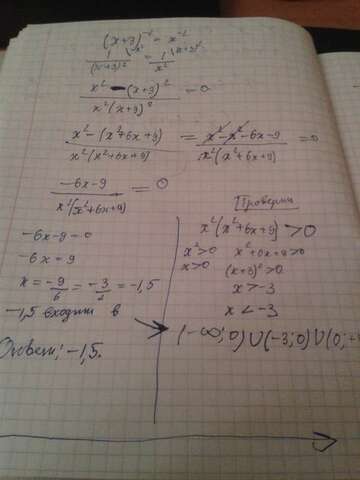 (x+3)⁻² = x⁻²
1/(x+3)² = 1/x²
x² - (x+3)² / x²(x+3)² = 0
x² - (x²+6x+9) / x²(x²+6x+9) = x² - x² - 6x - 9 / x²(x²+6x+9) = 0
-6x-9 / x²(x²+6x+9) = 0
-6x-9=0
-6x=9
x = -9/6 = -3/2 = -1,5
-1,5 входит в
Ответ: -1,5.
Проверка
x²(x²+6x+9) > 0
x²>0 x²+6x+9>0
x>0 (x+3)²>0
x > -3
x < -3
(-∞; 0) ∪ (-3; 0) ∪ (0; +